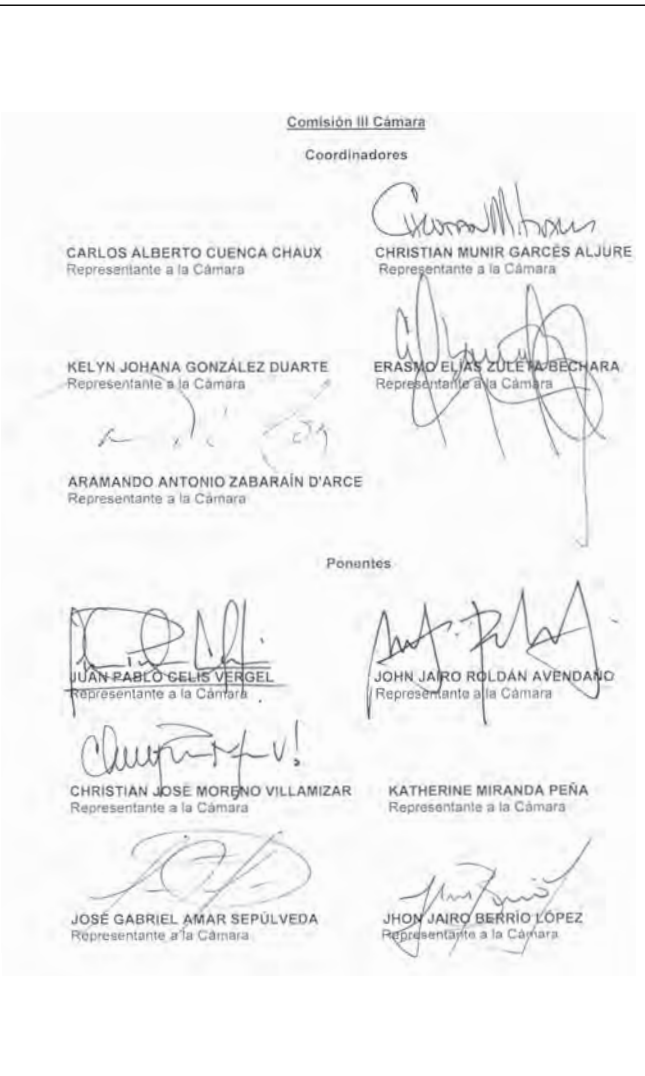 Comisión III Cámara
Coordinadores
CARLOS ALBERTO CUENCA CHAUX
Representante a la Cámara
CHRISTIAN MUNIR GARCÉS ALJURE
Representante a la Cámara
KELYN JOHANA GONZÁLEZ DUARTE
Representante a la Cámara
ERASMO ELÍAS ZULETA BECHARA
Representante a la Cámara
ARAMANDO ANTONIO ZABARAÍN D'ARCE
Representante a la Cámara
Ponentes
JUAN PABLO CELIS VERGEL
Representante a la Cámara
JOHN JAIRO ROLDÁN AVENDAÑO
Representante a la Cámara
CHRISTIAN JOSÉ MORENO VILLAMIZAR
Representante a la Cámara
KATHERINE MIRANDA PEÑA
Representante a la Cámara
JOSÉ GABRIEL AMAR SEPÚLVEDA
Representante a la Cámara
JHON JAIRO BERRÍO LÓPEZ
Representante a la Cámara